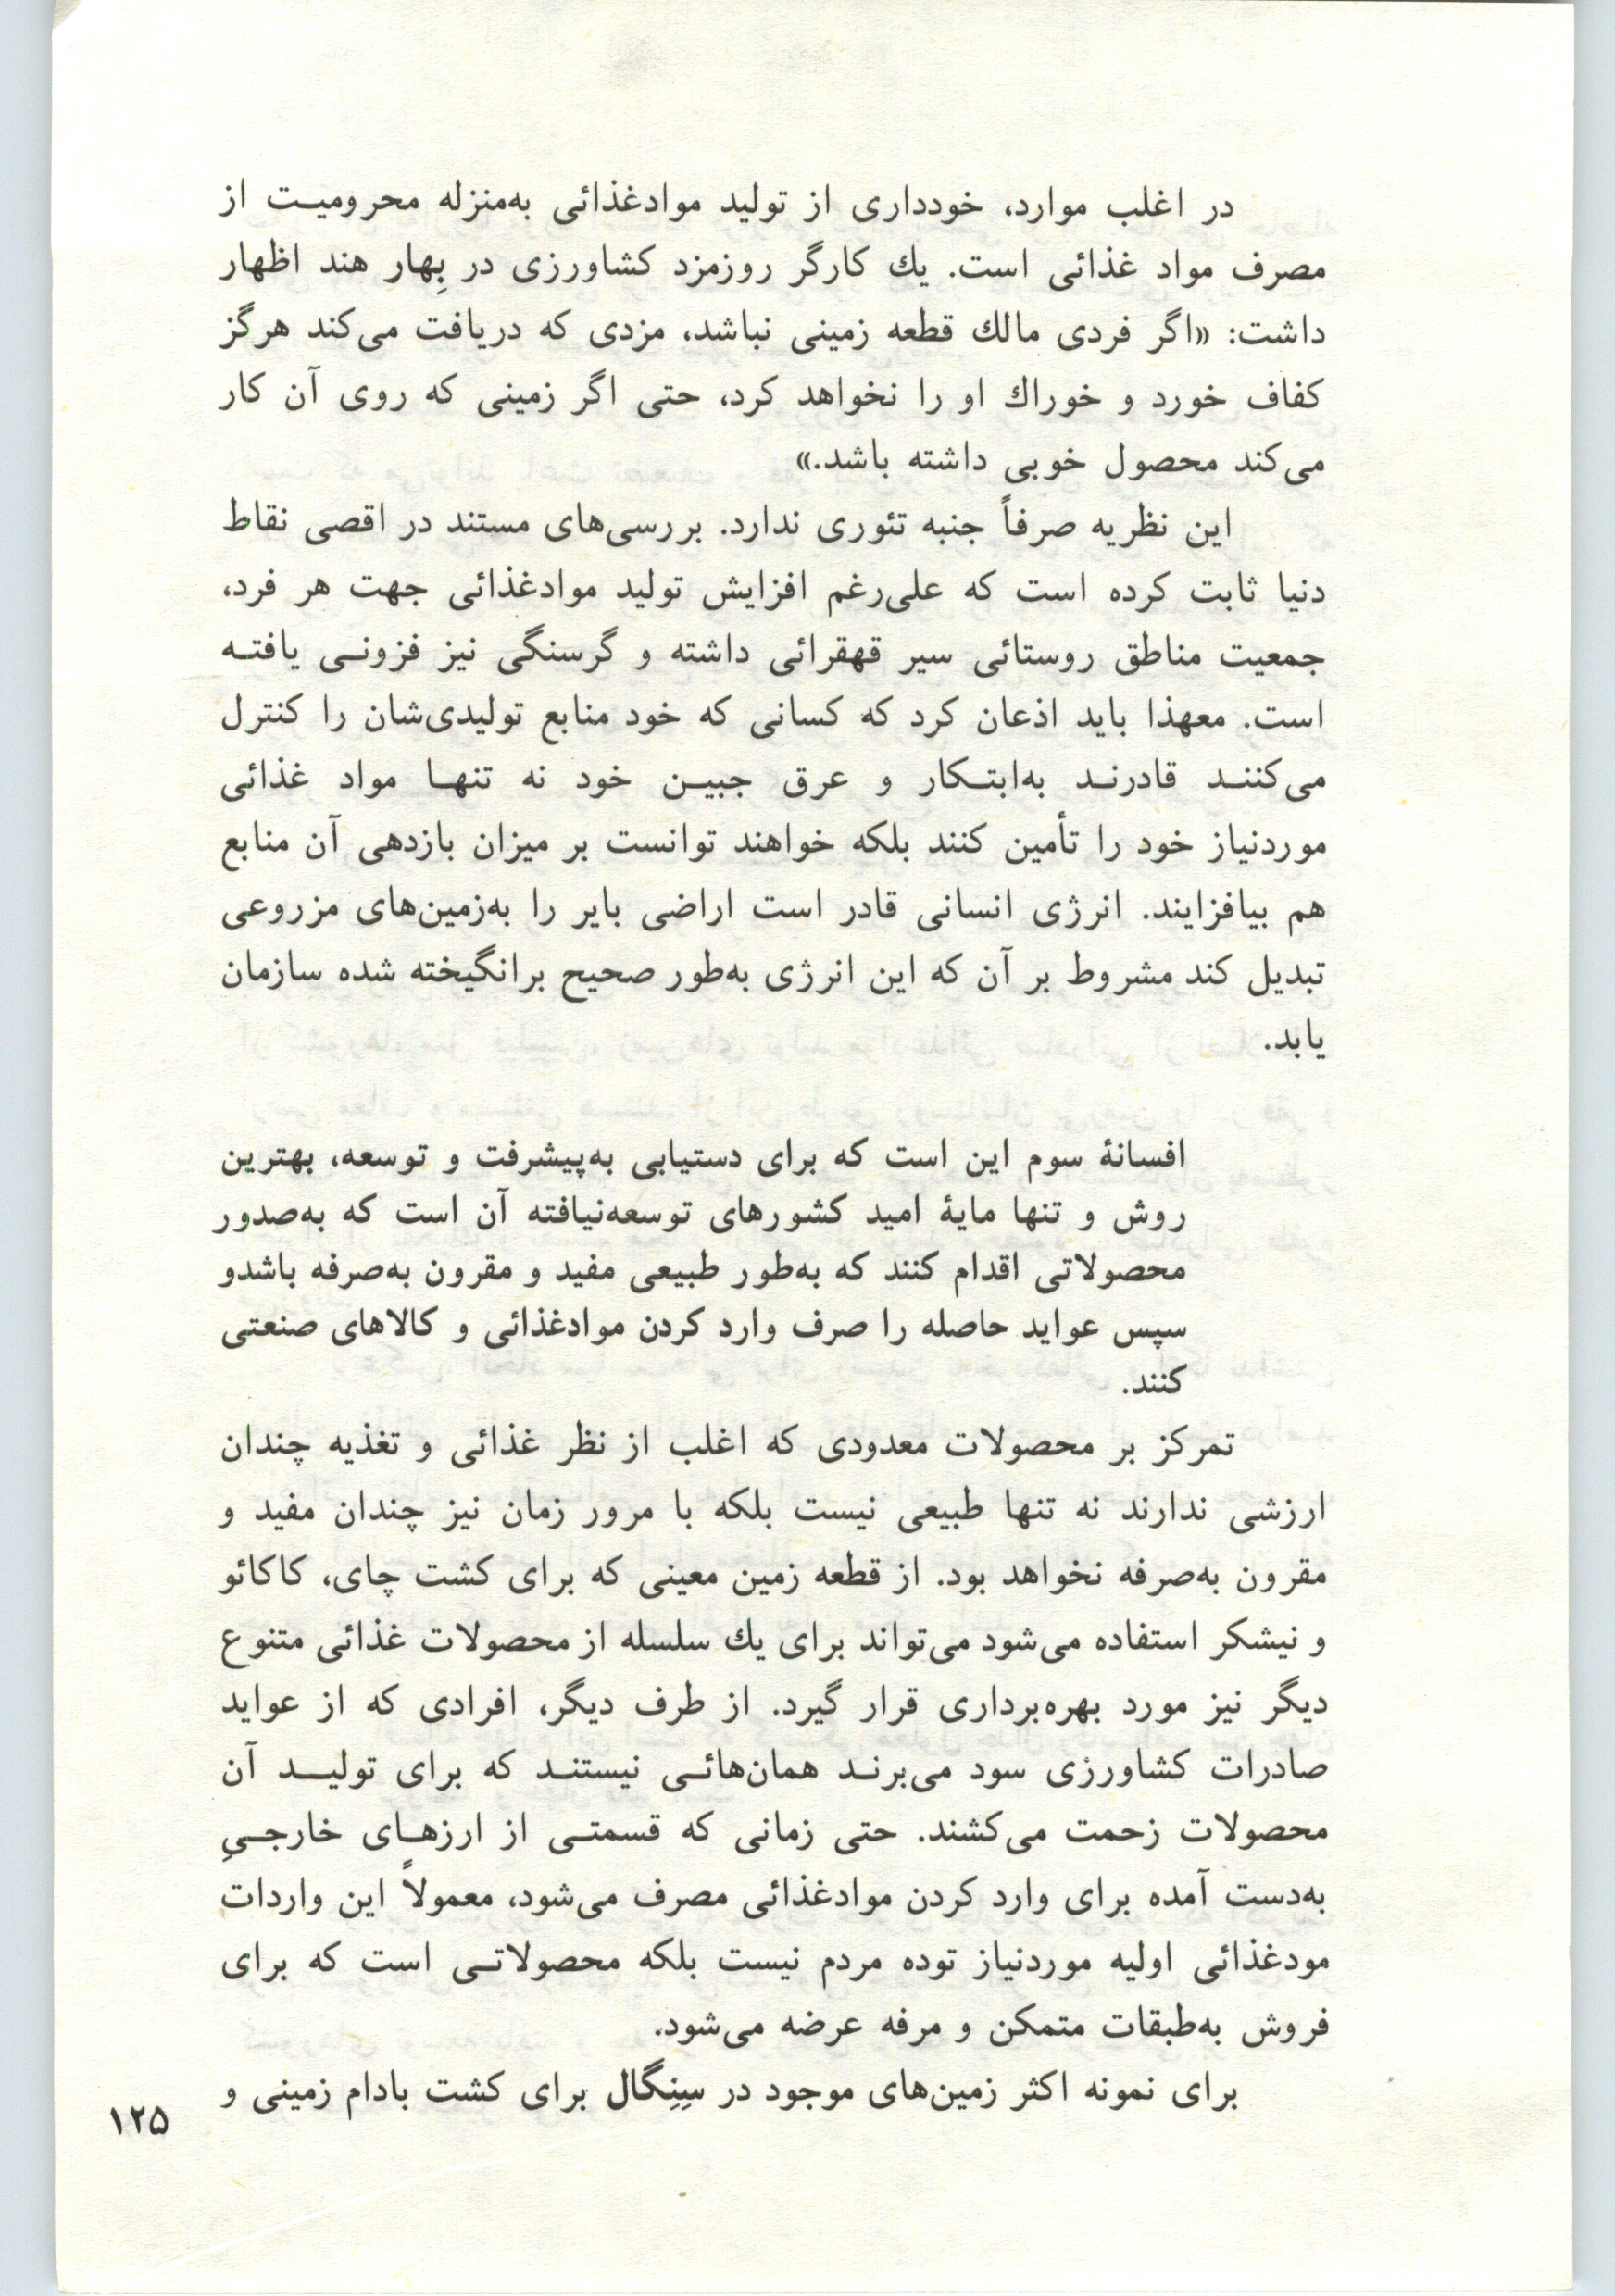 در اغلب موارد، خودداری از تولید موادغذائی به‌منزله محرومیت از
مصرف مواد غذائی است. یك کارگر روزمزد کشاورزی در بِهار هند اظهار
داشت: «اگر فردی مالك قطعه زمینی نباشد، مزدی که دریافت می‌کند هرگز
کفاف خورد و خوراك او را نخواهد کرد، حتی اگر زمینی که روی آن کار
می‌کند محصول خوبی داشته باشد.»
این نظریه صرفاً جنبه تئوری ندارد. بررسی‌های مستند در اقصی نقاط
دنیا ثابت کرده است که علی‌رغم افزایش تولید موادغذائی جهت هر فرد،
جمعیت مناطق روستائی سیر قهقرائی داشته و گرسنگی نیز فزونی یافته
است. معهذا باید اذعان کرد که کسانی که خود منابع تولیدی‌شان را کنترل
می‌کنند قادرند به‌ابتکار و عرق جبین خود نه تنها مواد غذائی
موردنیاز خود را تأمین کنند بلکه خواهند توانست بر میزان بازدهی آن منابع
هم بیافزایند. انرژی انسانی قادر است اراضی بایر را به‌زمین‌های مزروعی
تبدیل کند مشروط بر آن که این انرژی به‌طور صحیح برانگیخته شده سازمان
یابد.
افسانهٔ سوم این است که برای دستیابی به‌پیشرفت و توسعه، بهترین
روش و تنها مایهٔ امید کشورهای توسعه‌نیافته آن است که به‌صدور
محصولاتی اقدام کنند که به‌طور طبیعی مفید و مقرون به‌صرفه باشدو
سپس عواید حاصله را صرف وارد کردن موادغذائی و کالاهای صنعتی
کنند.
تمرکز بر محصولات معدودی که اغلب از نظر غذائی و تغذیه چندان
ارزشی ندارند نه تنها طبیعی نیست بلکه با مرور زمان نیز چندان مفید و
مقرون به‌صرفه نخواهد بود. از قطعه زمین معینی که برای کشت چای، کاکائو
و نیشکر استفاده می‌شود می‌تواند برای یك سلسله از محصولات غذائی متنوع
دیگر نیز مورد بهره‌برداری قرار گیرد. از طرف دیگر، افرادی که از عواید
صادرات کشاورزی سود می‌برند همان‌هائی نیستند که برای تولید آن
محصولات زحمت می‌کشند. حتی زمانی که قسمتی از ارزهای خارجیِ
به‌دست آمده برای وارد کردن موادغذائی مصرف می‌شود، معمولاً این واردات
مودغذائی اولیه موردنیاز توده مردم نیست بلکه محصولاتی است که برای
فروش به‌طبقات متمکن و مرفه عرضه می‌شود.
برای نمونه اکثر زمین‌های موجود در سِنِگال برای کشت بادام زمینی و
۱۲۵